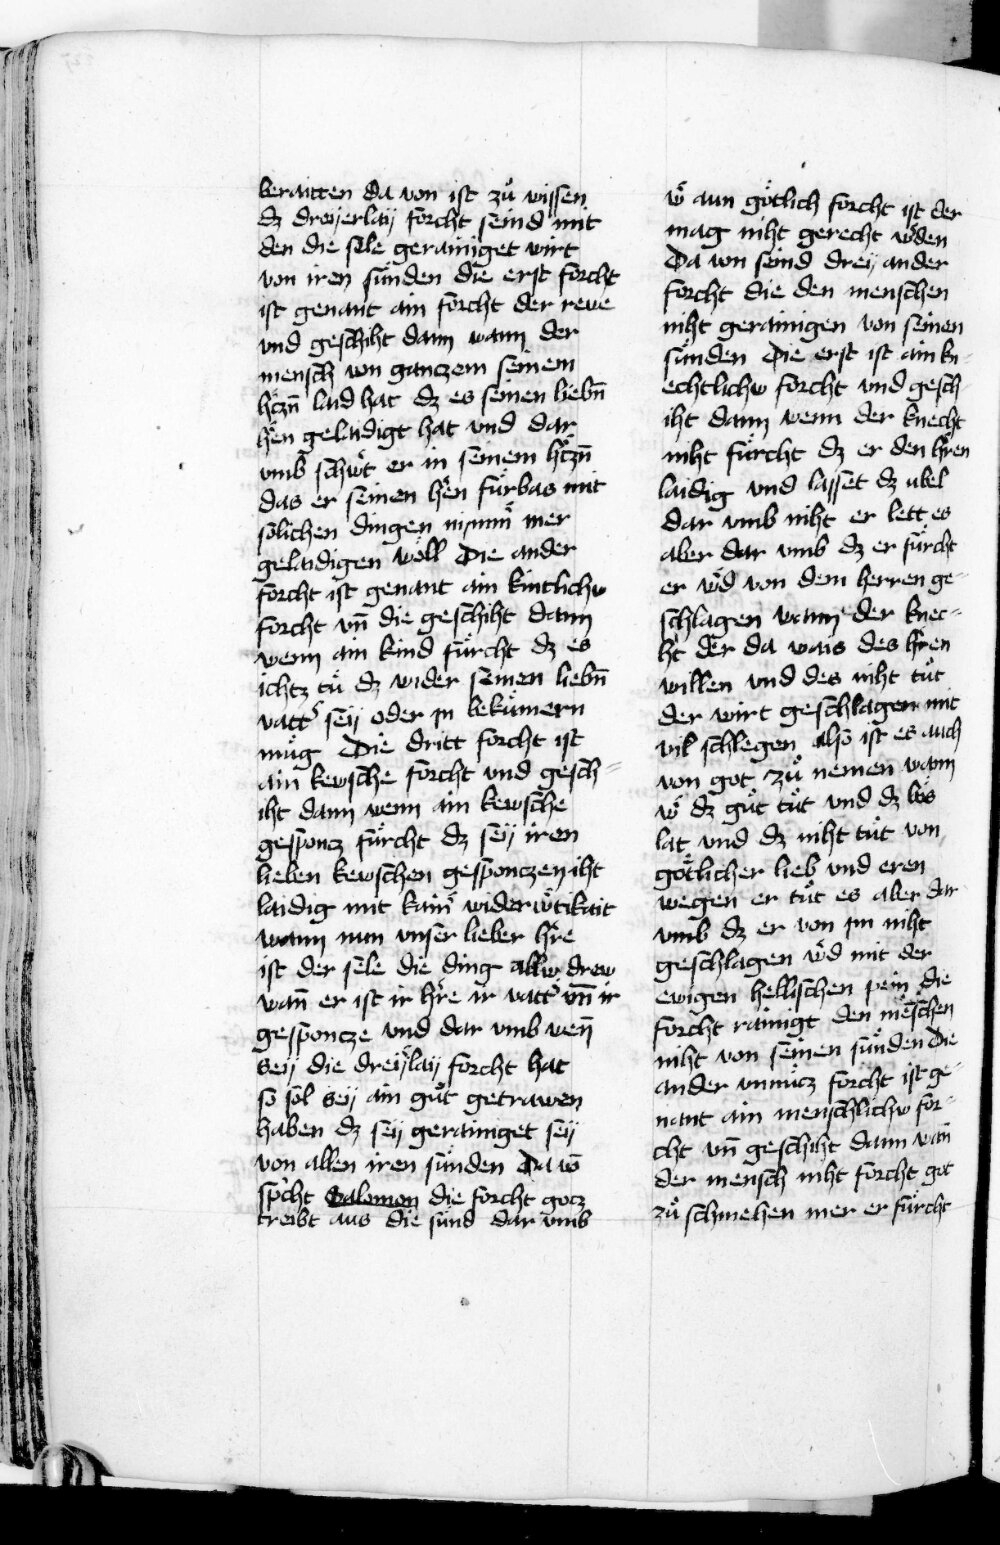 beraitten da von ist zů wissen
dz dreẏerlaẏ forcht seind mit
den die sele gerainiget wirt
von iren sünden die erst forcht
ist genant ain forcht der reve
vnd geschiht dann wann der
mensch von ganczem seinem
h̾czn̄ laid hat dz es seinen liebn̄
h̾en gelaidigt hat vnd dar
vmb schw̾t er in seinem h̾czn̄
das er seinen h̾en fürbas mit
solichen dingen nimm̾ mer
gelaidigen wöll Die ander
forcht ist genant ain kintlichw
forcht vn̄ die geschiht dann
wenn ain kind fürcht dz es
ichtz tů dz wider seinen liebn̄
vatt̾ seẏ oder in bekümern
müg Die dritt forcht ist
ain kewsche forcht vnd gesch=
iht dann wenn ain kewsche
gesponcz fürcht dz seẏ iren
lieben kewschen gesponczen iht
laidig mit kain̾ widerw̾tikait
wann nun vnser lieber h̾re
ist der sele die ding allw drew
wan̄ er ist ir h̾re ir vatt̾ vn̄ ir
gesponcze vnd dar vmb wen̄
seẏ die dreẏ̾laẏ forcht hat
so sol seẏ ain gůt getrawen
haben dz seẏ gerainiget seẏ
von allen iren sünden Da vō
sp̾cht Salomon die forcht gocz
treibt aus die sünd dar vmb
w̾ aun götlich forcht ist der
mag niht gerecht w̾den
Da von seind dreẏ ander
forcht die den menschen
niht gerainigen von seinen
sünden Die erst ist ain kn=
echtlichw forcht vnd gesch=
iht dann wenn der knecht
niht fürcht dz er den h̾ren
laidig vnd lasset dz übel
dar vmb niht er lett es
aber dar vmb dz er fürcht
er w̾d von dem herren ge=
schlagen wann der knec=
ht der da wais des h̾ren
willen vnd des niht tůt
der wirt geschlagen mit
vil schlegen also ist es auch
von got zů nemen wann
w̾ dz gůt tůt vnd dz bös
lat vnd dz niht tůt von
götlicher lieb vnd eren
wegen er tůt es aber dar
vmb dz er von im niht
geschlagen w̾d mit der
ewigen hellischen pein die
forcht rainigt den mēschen
niht von seinen sünden Die
ander vnnücz forcht ist ge=
nant ain menschlichw for=
cht vn̄ geschiht dann wan̄
der mensch niht forcht got
zů schmehen mer er fürcht